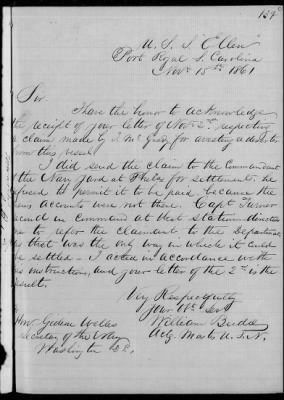 U.S.S. "Ellen"
Port Royal S. Carolina
Nov 15th 1861
Sir.
I have the honor to acknowledge
the receipt of your letter of Nov 2nd respecting
a claim made by J. Mc Gray for arresting a deserter
from this vessel
I did send the claim to the Commandant
of the Navy Yard at for settlement. He
refused to permit it to be paid, because the
accounts were not there. Capt Turner
second in Command at that station directed
me to refer the claimant to the Department
as that was the only way in which it could
be settled - I acted in accordance with
his instructions, and your letter of the 2nd is the
result.
Very Respectfully
your Obt Servt
William Budd
Actg. Mastr. U.S.N.
Hon. Gideon Welles
Secretary of the Navy
Washington D.C.